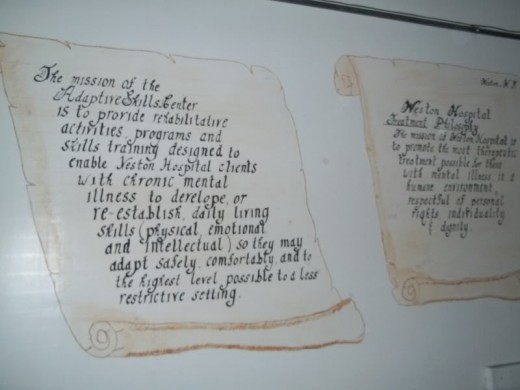 The mission of the
Adaptive Skills Center
is to provide rehabilitative
activities, programs and
skills training designed to
enable Weston Hospital clients
with chronic mental
illness to develope, or
re-establish, daily living
skills (physical, emotional
and intellectual) so they may
adapt safely, comfortably, and to
the highest level possible to a less
restrictive setting.
Weston Hospital
Treatment Philosophy
The mission of Weston Hospital is
to promote the most therapeutic
treatment possible for those
with mental illness in a
humane environment,
respectful of personal
rights, individuality
& dignity.